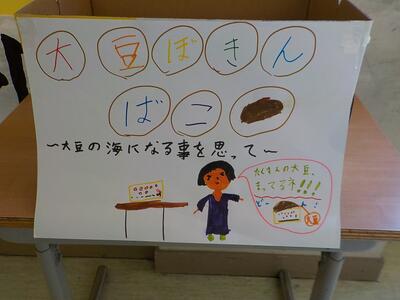 大豆ぼきん
ばこ
〜大豆の海になる事を思って〜
たくさんの大豆、
まってるネ!!!